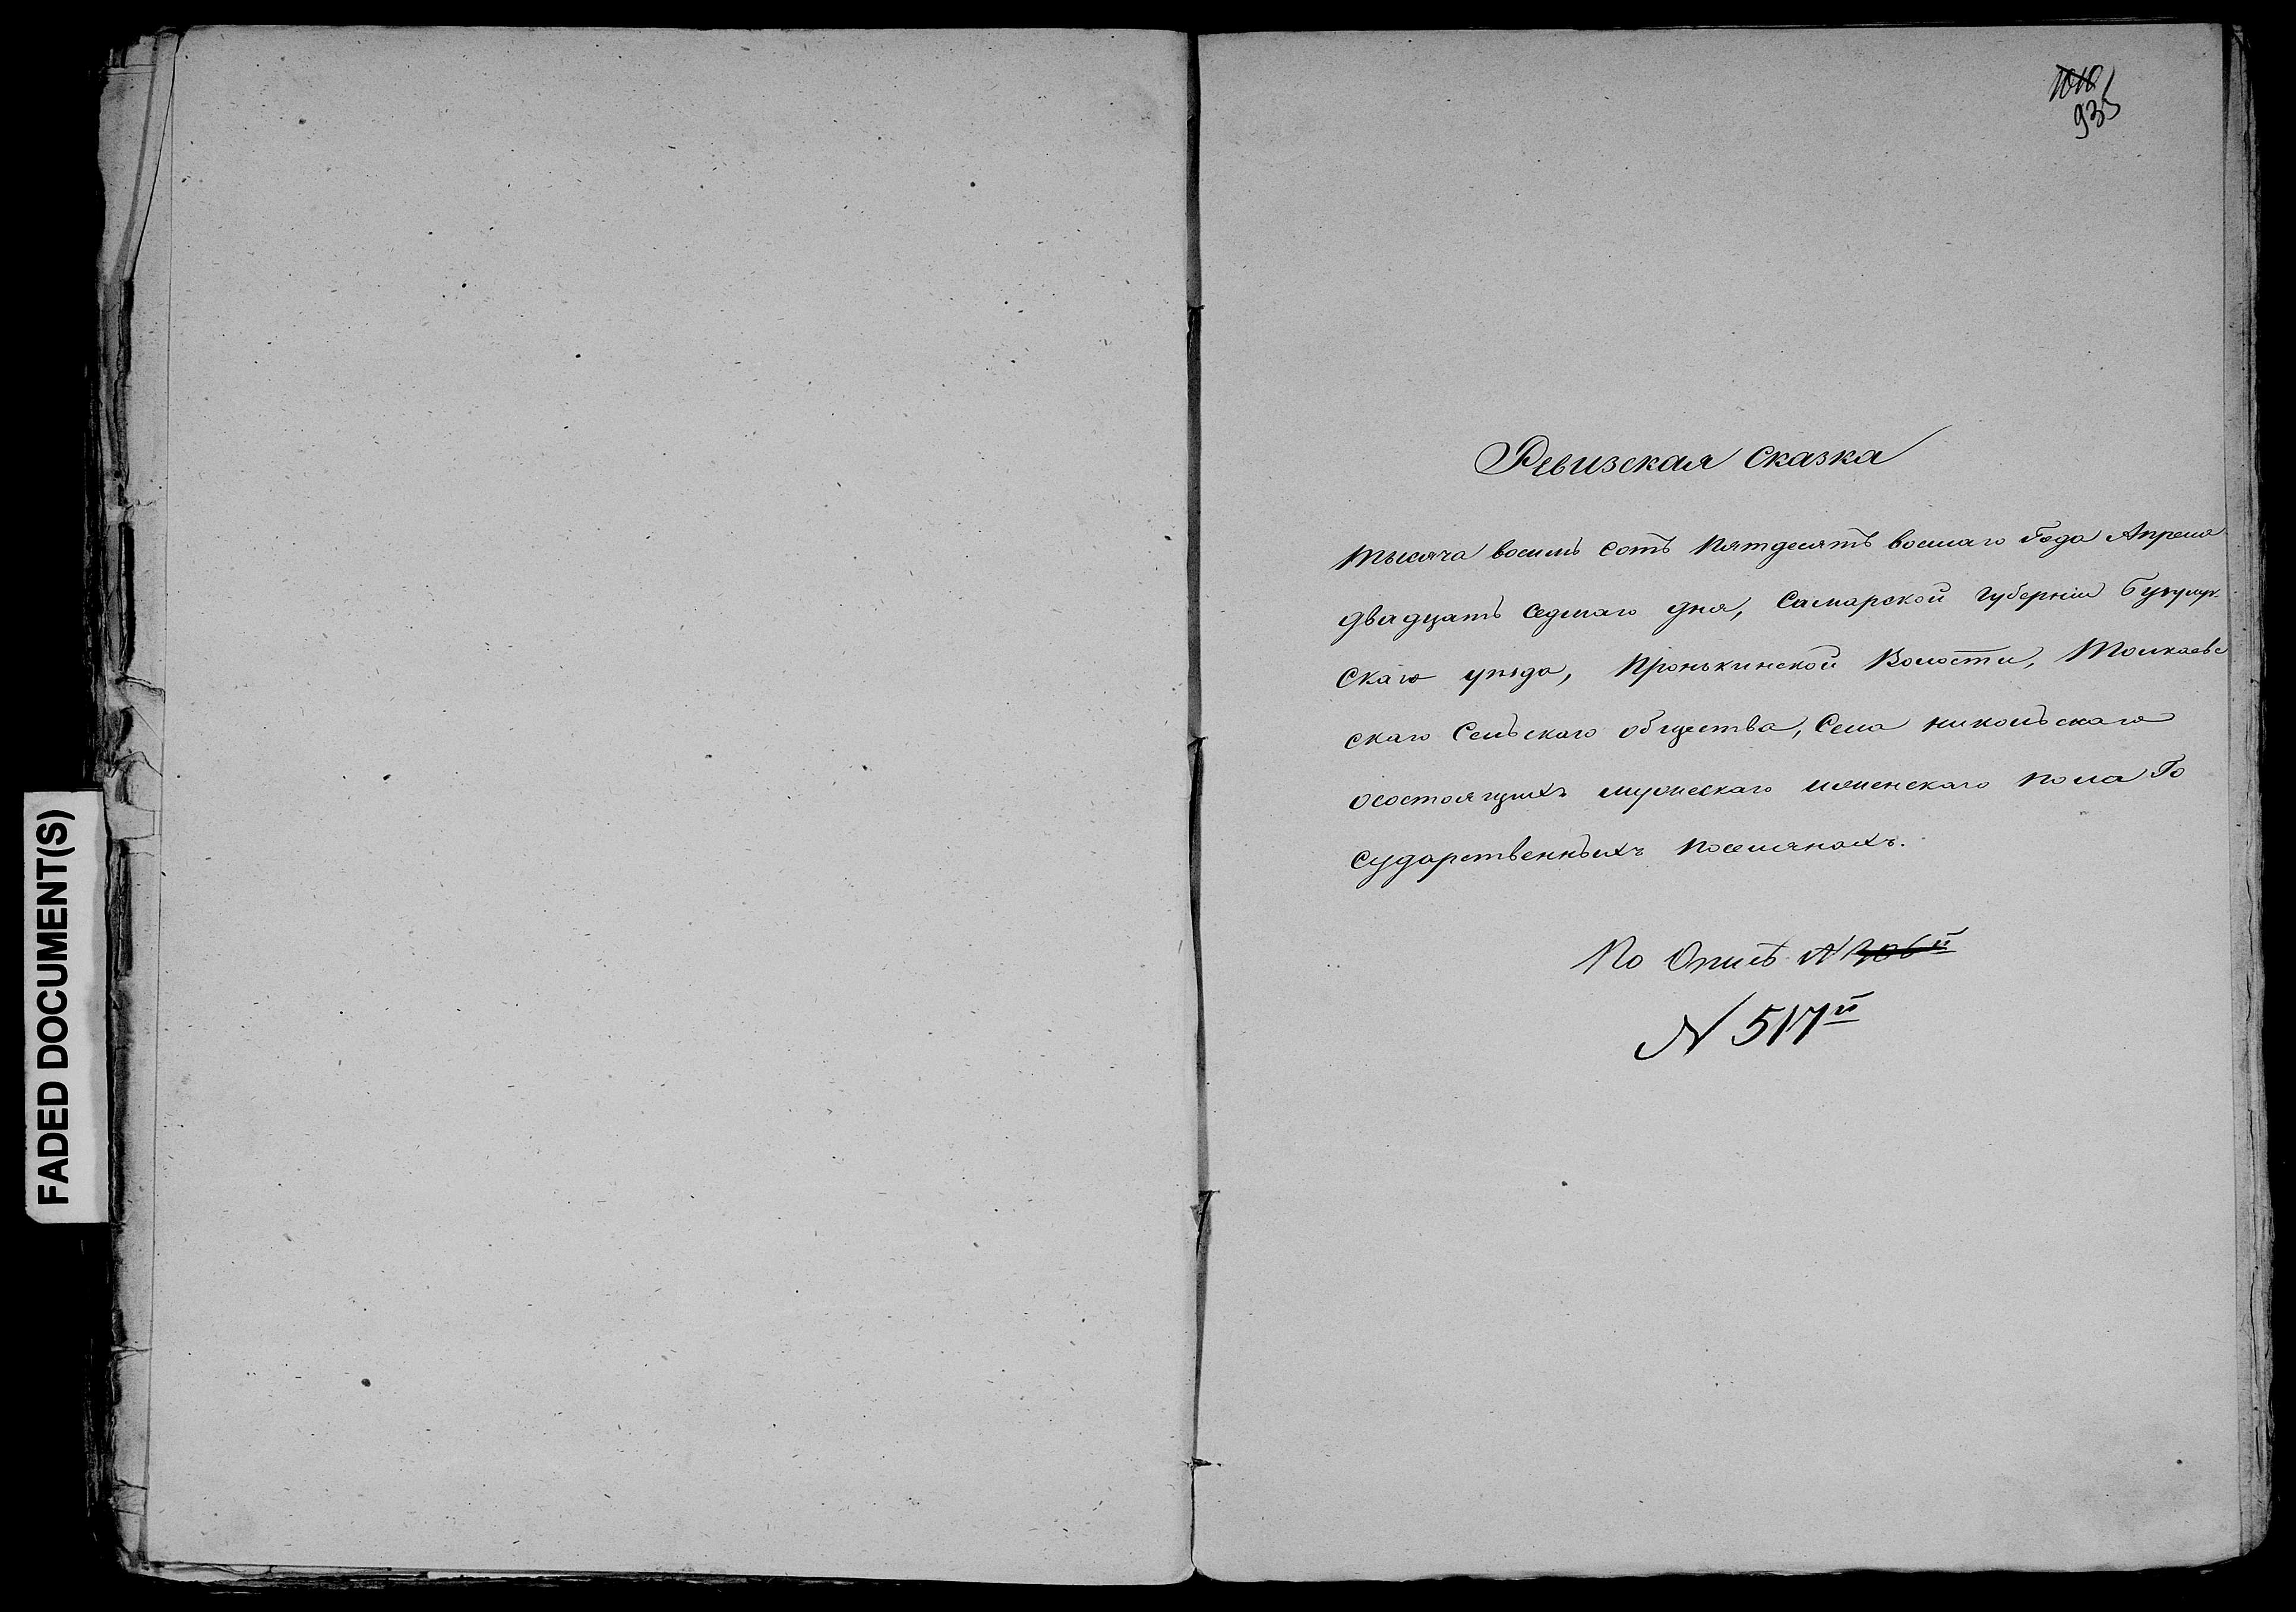 1010
935
Ревизская сказка
тысяча восемь сотъ пятдесятъ восмаго Года Апреля
двадцать седмаго дня, Самарской губерніи Бугурус
скаго уезда, Пронькинской Волости, Толкаевс
скаго Сельскаго общества, Села никольскаго
осостоящихъ мужескаго иженскаго пола Го
сударственныхъ поселянахъ.
По Описѣ №
N 517й
FADED DOCUMENT(S)